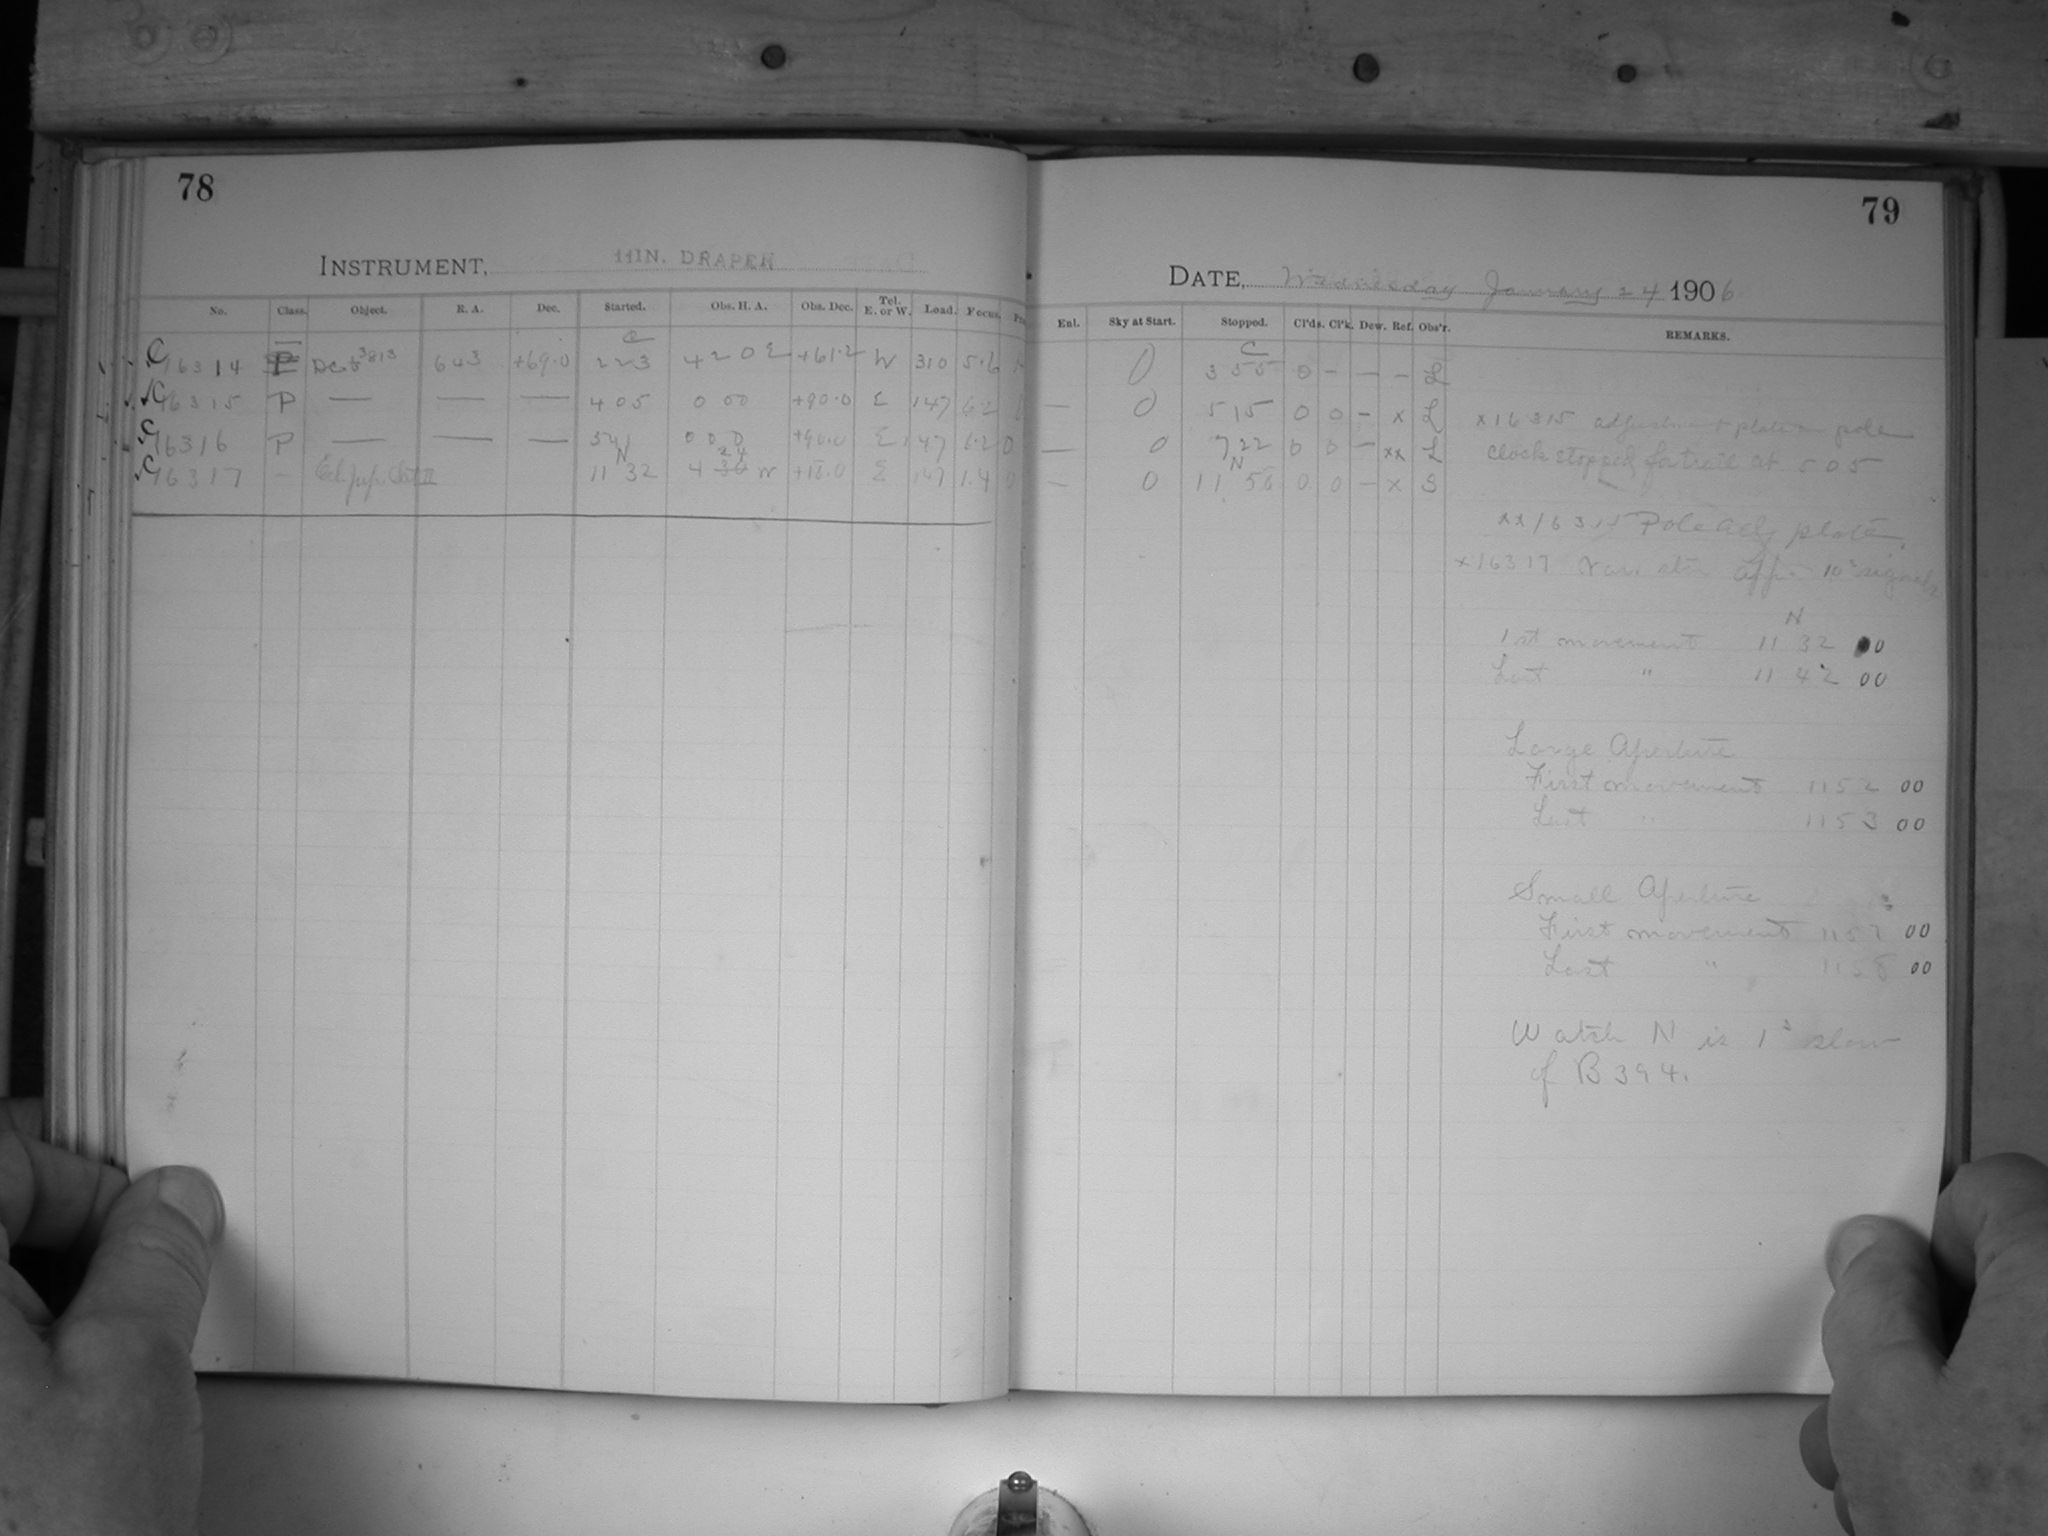 78
INSTRUMENT, 11IN. DRAPER
No. Class. Object. R. A. Dec. Started. Obs. H. A. Obs. Dec. Tel. E. or W. Load. Focus.
C
C16314 DC 3813 643 +69.0 223 4 20 E +61.2 W 310 5.6
C16315 P — — — 405 0 00 +90.0 E 147 6.2
C16316 P — — — 0 0 0 +90.0 E 147 6.2 0
N 24
C16317 – 11 32 4 30 W +18.0 E 147 1.4 0
79
DATE, Wednesday January 24 1906
Enl. Sky at Start. Stopped. Cl'ds. Cl'k. Dew. Ref. Obs'r. REMARKS.
C
0 355 0 – – – L
— 0 515 0 0 – x L x 16315 adjustment plate on pole
— 0 722 0 0 – xx L clock stopped for trail at 505
N
— 0 11 58 0 0 – x S
xx 16315 Pole adj plate.
x 16317 Var. star App. 10s signals
N
1st movement 11 32 00
Last " 11 42 00
Large Aperture
First movement 1152 00
Last " 1153 00
Small Aperture
First movement 1157 00
Last " 1158 00
Watch N is 1s slow
of B 394.